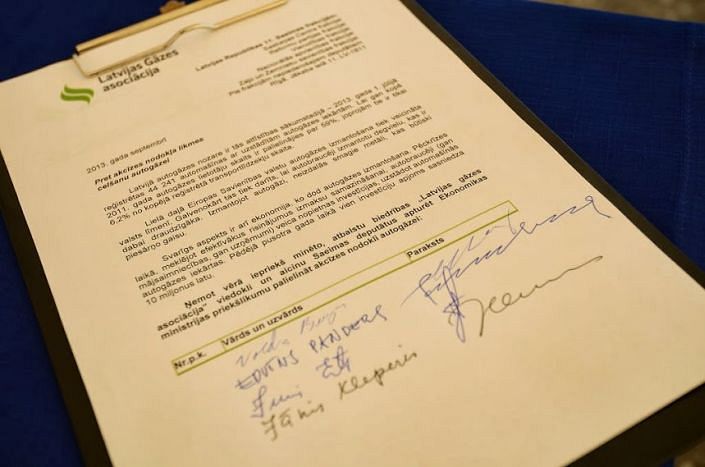 Latvijas Gāzes
asociācija
Latvijas Republikas 11. Saeimas frakcijām:
Saskaņas Centra frakcijai
Reformu partijas frakcijai
Vienotības frakcijai
Nacionālās apvienības frakcijai
Zaļo un Zemnieku savienības frakcijai
Pie frakcijām nepiederošajiem deputātiem
Rīgā, Jēkaba ielā 11, LV-1811
2013. gada septembrī
Pret akcīzes nodokļa likmes
celšanu autogāzei
Latvijā autogāzes nozare ir tās attīstības sākumstadijā – 2013. gada 1. jūlijā
reģistrētas 44 241 automašīnas ar uzstādītām autogāzes iekārtām. Lai gan kopš
2011. gada autogāzes lietotāju skaits ir palielinājies par 59%, joprojām tie ir tikai
6,2% no kopējā reģistrētā transportlīdzekļu skaita.
Lielā daļā Eiropas Savienības valstu autogāzes izmantošana tiek veicināta
valsts līmenī. Galvenokārt tas tiek darīts, lai autobraucēji izmantotu degvielu, kas ir
dabai draudzīgāka. Izmantojot autogāzi, neizdalās smagie metāli, kas būtiski
piesārņo gaisu.
Svarīgs aspekts ir arī ekonomija, ko dod autogāzes izmantošana. Pēckrīzes
laikā, meklējot efektīvākus risinājumus izmaksu samazināšanai, autobraucēji (gan
mājsaimniecības, gan uzņēmumi) veica nopietnas investīcijas, uzstādot automašīnās
autogāzes iekārtas. Pēdējā pusotra gada laikā vien investīciju apjoms sasniedza
10 miljonus latu.
Ņemot vērā iepriekš minēto, atbalstu biedrības „Latvijas gāzes
asociācija" viedokli un aicinu Saeimas deputātus apturēt Ekonomikas
ministrijas priekšlikumu palielināt akcīzes nodokli autogāzei:
Nr.p.k. Vārds un uzvārds Paraksts
EDVĪNS PANDERS
Jānis Kleperis